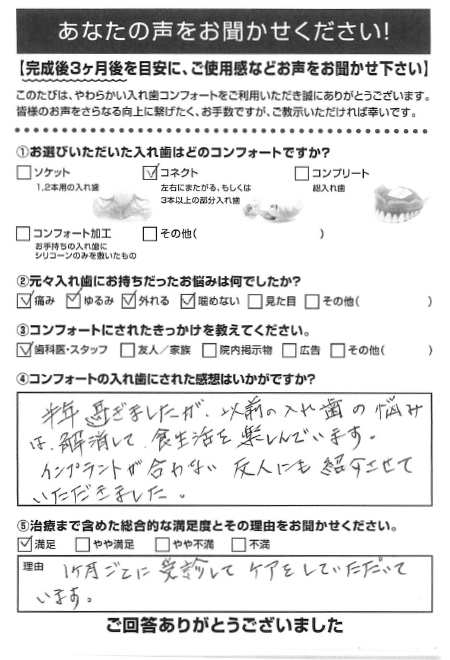 あなたの声をお聞かせください!
【完成後3ヶ月後を目安に、ご使用感などお声をお聞かせ下さい】
このたびは、やわらかい入れ歯コンフォートをご利用いただき誠にありがとうございます。
皆様のお声をさらなる向上に繋げたく、お手数ですが、ご教示いただければ幸いです。
①お選びいただいた入れ歯はどのコンフォートですか?
□ソケット ☑コネクト □コンプリート
1,2本用の入れ歯 左右にまたがる、もしくは 総入れ歯
3本以上の部分入れ歯
□コンフォート加工 □その他( )
お手持ちの入れ歯に
シリコーンのみを敷いたもの
②元々入れ歯にお持ちだったお悩みは何でしたか?
☑痛み ☑ゆるみ ☑外れる ☑噛めない □見た目 □その他( )
③コンフォートにされたきっかけを教えてください。
☑歯科医・スタッフ □友人/家族 □院内掲示物 □広告 □その他( )
④コンフォートの入れ歯にされた感想はいかがですか?
半年過ぎましたが、以前の入れ歯の悩み
は、解消して、食生活を楽しんでいます。
インプラントが合わない友人にも紹介させて
いただきました。
⑤治療まで含めた総合的な満足度とその理由をお聞かせください。
☑満足 □やや満足 □やや不満 □不満
理由 1ヶ月ごとに受診してケアをしていただいて
います。
ご回答ありがとうございました